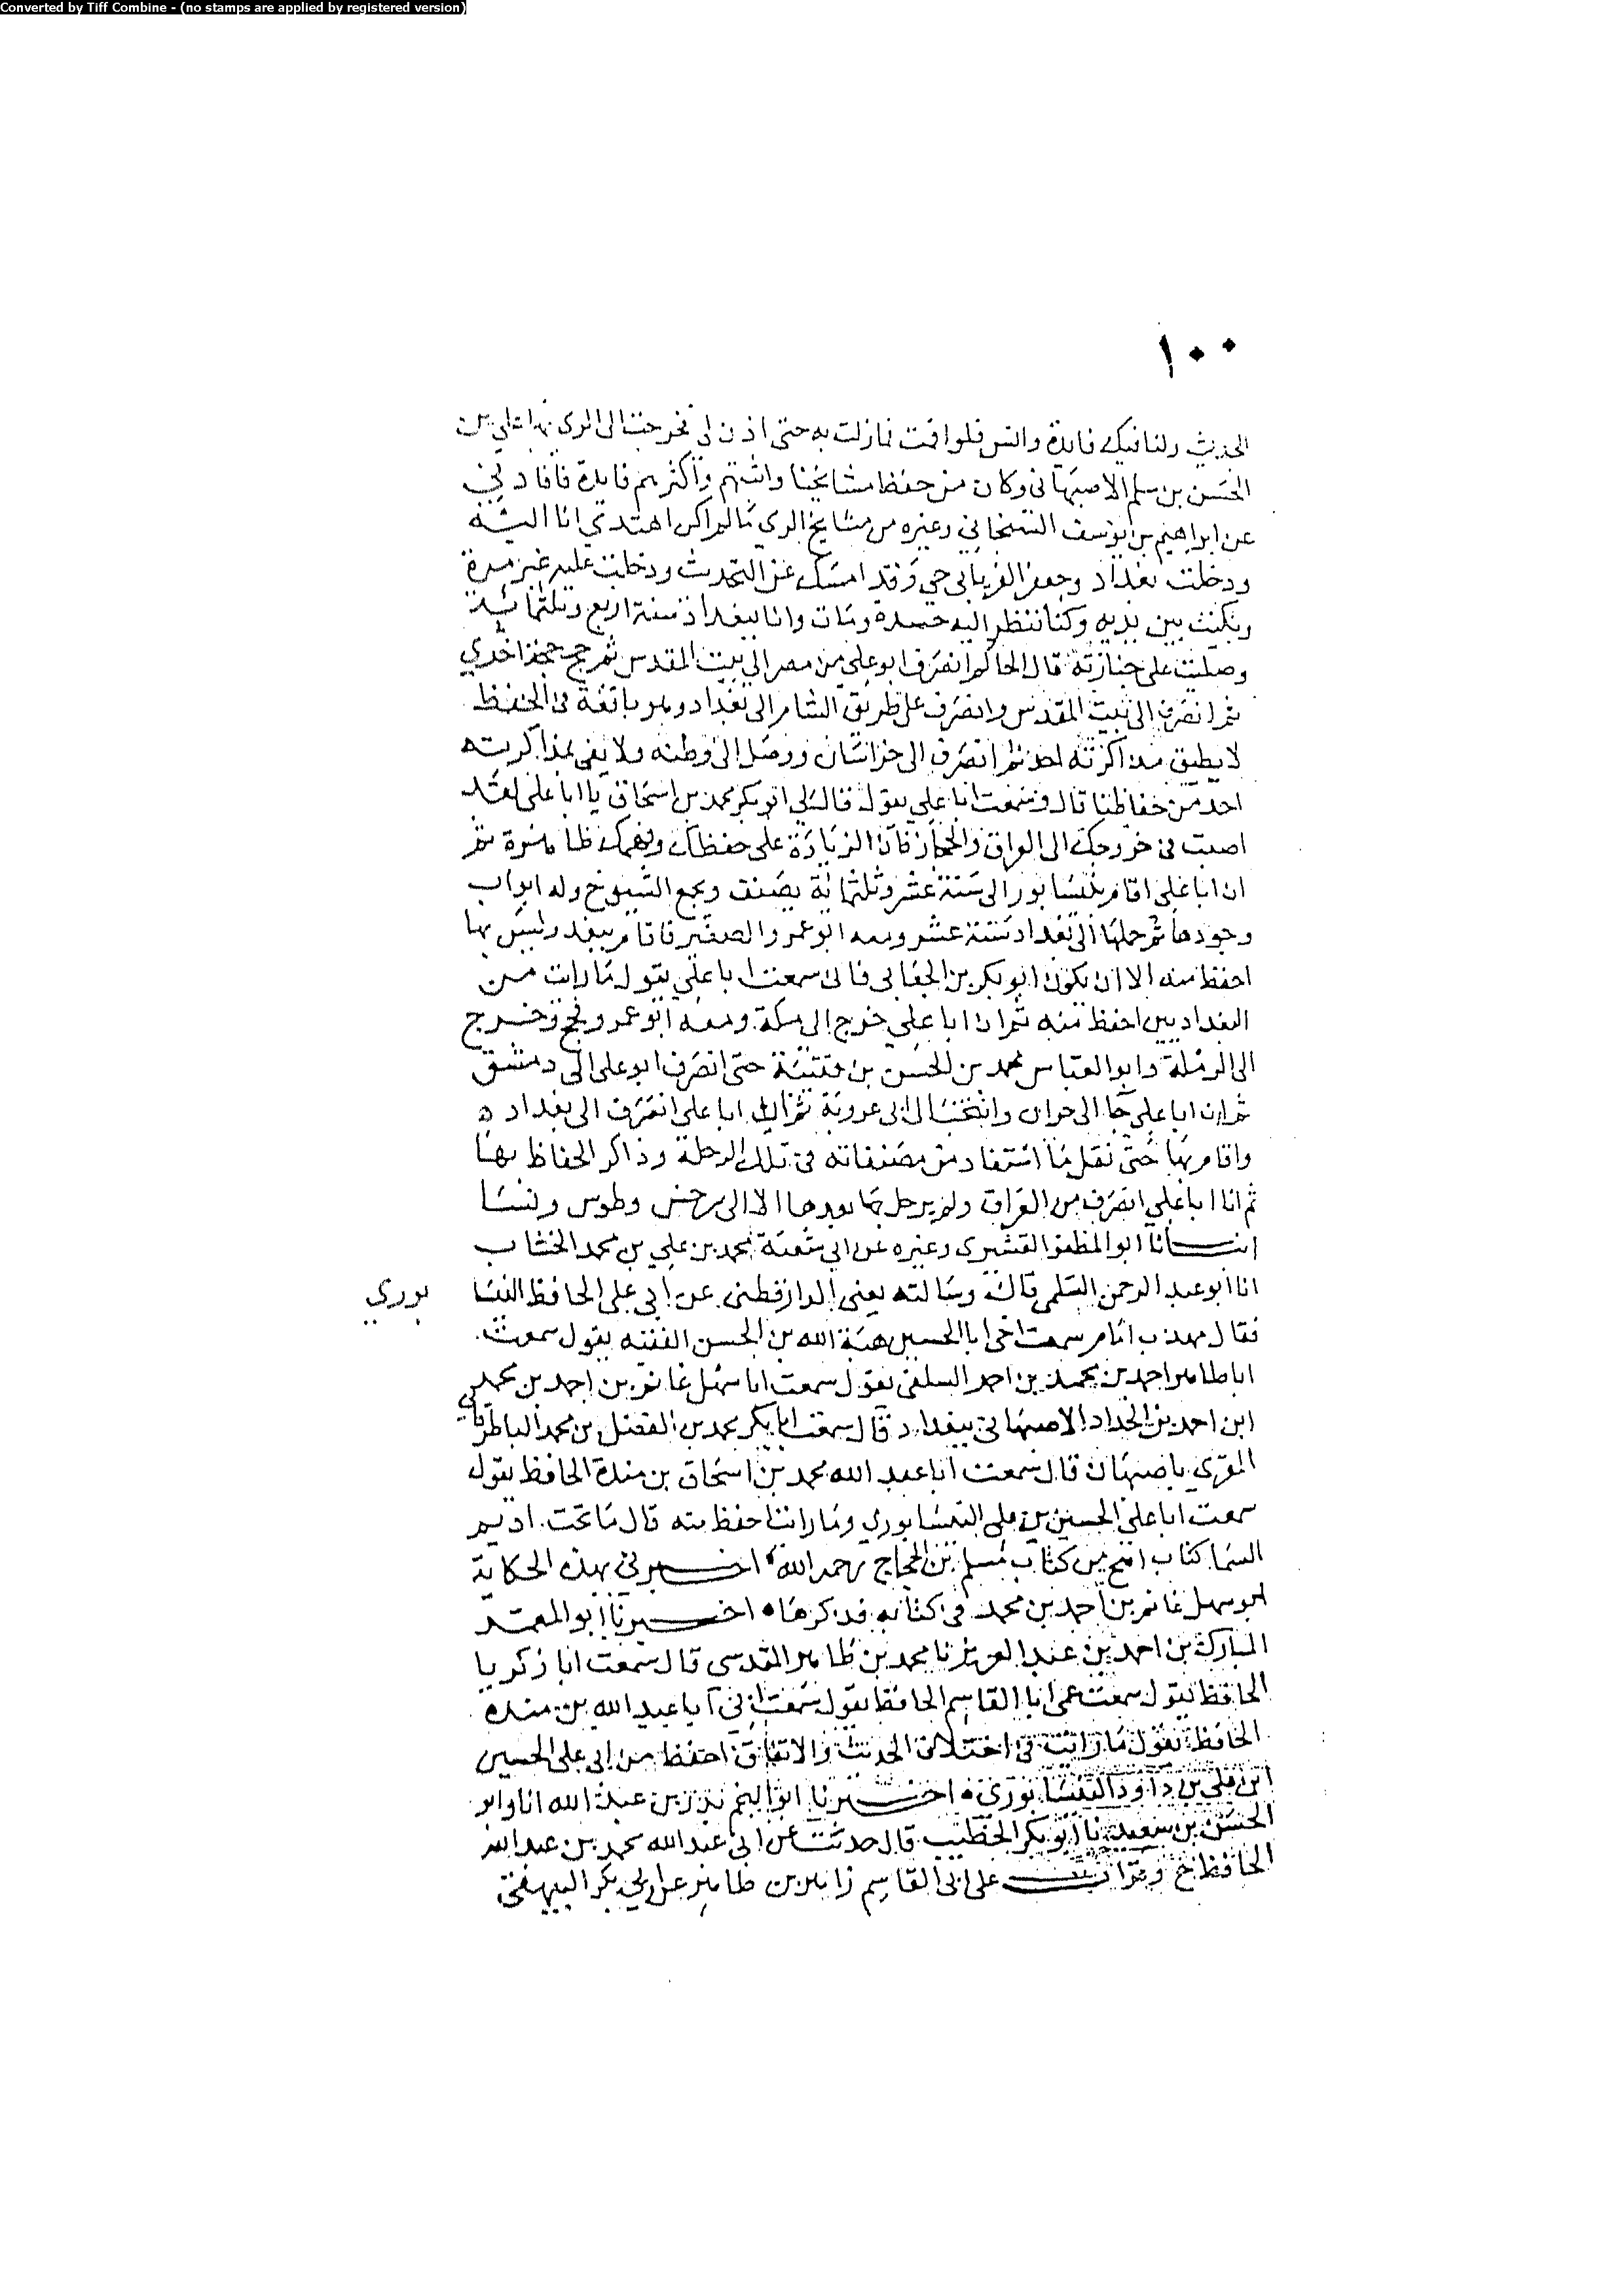 Converted by Tiff Combine - (no stamps are applied by registered version)
١٠٠
الحديث ولنا فيك فايدة وانس فلو اقمت فما زلت به حتى اذن لي فخرجت الى الري وبها علي بن
الحسن بن سلم الاصبهاني وكان من حفظ مشايخنا واثبتهم واكثرهم فايدة فافادني
عن ابراهيم بن يوسف الهسنجاني وغيره من مشايخ الري ما لم اكن اهتدي انا اليه
ودخلت بغداد وجعفر الفريابي حي وقد امسك عن التحديث ودخلت عليه غير مرة
وبكيت بين يديه وكنا ننظر اليه حسرة ومات وانا ببغداد سنة اربع وثلثمائة
وصليت على جنازته قال الحاكم انصرف ابو علي من مصر الى بيت المقدس ثم حج حجة اخرى
ثم انصرف الى بيت المقدس وانصرف على طريق الشام الى بغداد وهو باقعة في الحفظ
لا يطيق مذاكرته احد ثم انصرف الى خراسان ووصل الى وطنه ولا يفي بمذاكرته
احد من حفاظنا قال وسمعت ابا علي يقول قال لي ابو بكر محمد بن اسحاق يا ابا علي لقد
اصبت في خروجك الى العراق والحجاز فان الزيادة على حفظك وفهمك ظاهرة ثم
ان ابا علي اقام بنيسابور الى سنة عشر وثلثمائة يصنف ويجمع الشيوخ وله ابواب
وجودها ثم حملها الى بغداد سنة عشر ومعه ابو عمرو الصغير فاقام ببغد وليس بها
احفظ منه الا ان يكون ابو بكر بن الجعابي فاني سمعت ابا علي يقول ما رايت من
البغداديين احفظ منه ثم ان ابا علي خرج الى مكة ومعه ابو عمرو فحج وخرج
الى الرملة وابو العباس محمد بن الحسن بن قتيبة حتى انصرف ابو علي الى دمشق
ثم ان ابا علي جا الى حران وانتخب الى ابي عروبة ثم ان ابا علي انصرف الى بغداد ه
واقام بها حتى نقل ما استفاد من مصنفاته في تلك الرحلة وذاكر الحفاظ بها
ثم ان ابا علي انصرف من العراق ولم يرحل بعدها الا الى سرخس وطوس ونسا
انبانا ابو المظفر القشيري وغيره عن ابي سعيد محمد بن علي بن محمد الخشاب
انا ابو عبد الرحمن السلمي قال وسالته يعني الدارقطني عن ابي علي الحافظ النيسا بوري
فقال مهذب امام سمعت اخي ابا الحسين هبة الله بن الحسن الفقيه يقول سمعت
ابا طاهر احمد بن محمد بن احمد السلفي يقول سمعت ابا سهل غانم بن احمد بن محمد
ابن احمد بن الحداد الاصبهاني ببغداد قال سمعت ابا بكر محمد بن الفضل بن محمد الباطرقاني
المقرئ باصبهان قال سمعت ابا عبد الله محمد بن اسحاق بن مندة الحافظ يقول
سمعت ابا علي الحسين بن علي النيسابوري وما رايت احفظ منه قال ما تحت اديم
السما كتاب اصح من كتاب مسلم بن الحجاج رحمه الله اخبرني بهذه الحكاية
ابو سهل غانم بن احمد بن محمد في كتابه فذكرها اخبرنا ابو المعمر
المبارك بن احمد بن عبد العزيز نا محمد بن طاهر المقدسي قال سمعت ابا زكريا
الحافظ يقول سمعت عمي ابا القاسم الحافظ يقول سمعت ابي ابا عبد الله بن منده
الحافظ يقول ما رايت في اختلاف الحديث والاتقان احفظ من ابي علي الحسين
ابن علي بن داود النيسابوري اخبرنا ابو النجم بدر بن عبد الله انا وابو
الحسن بن سعيد نا ابو بكر الخطيب قال حدثت عن ابي عبد الله محمد بن عبد الله
الحافظ ح وقرات على ابي القاسم زاهر بن طاهر عن ابي بكر البيهقي